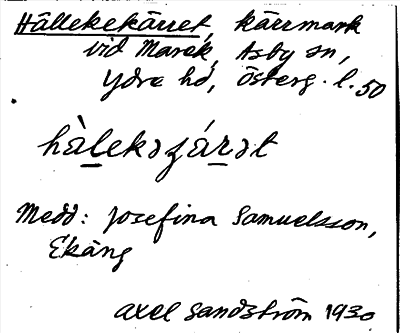 Hällekekärret, kärrmark
vid Marek, Asby sn,
Ydre hd, Österg. l. 50
hàlekəʒárət
Medd: Josefina Samuelsson,
Ekäng
Axel Sandström 1930